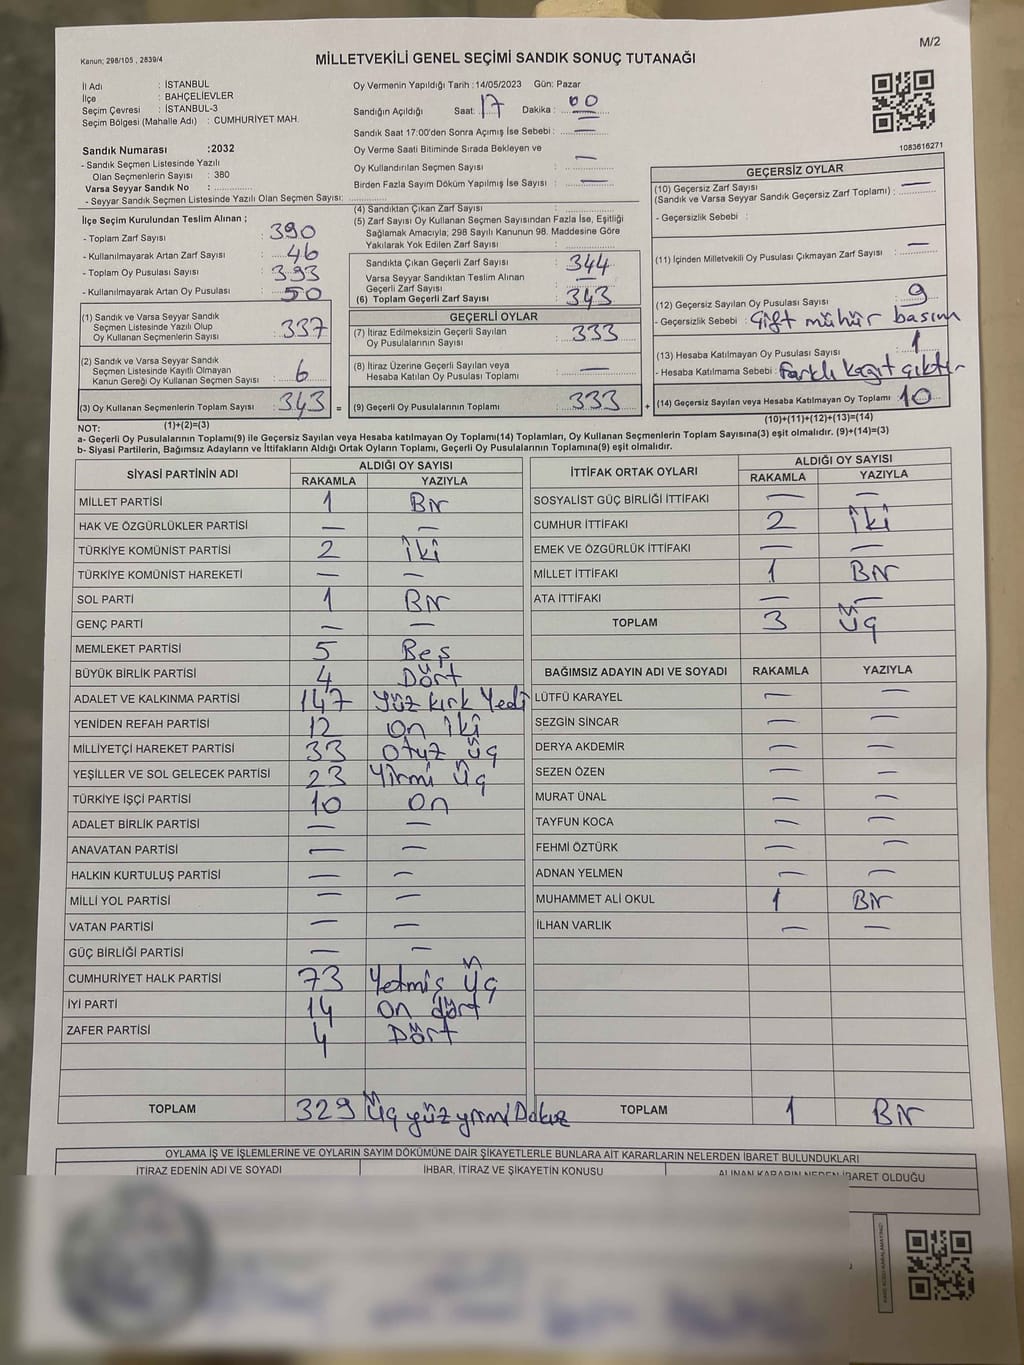 M/2
Kanun; 298/105 , 2839/4
MİLLETVEKİLİ GENEL SEÇİMİ SANDIK SONUÇ TUTANAĞI
İl Adı : İSTANBUL
İlçe : BAHÇELİEVLER
Seçim Çevresi : İSTANBUL-3
Seçim Bölgesi (Mahalle Adı) : CUMHURİYET MAH.
Sandık Numarası :2032
- Sandık Seçmen Listesinde Yazılı
Olan Seçmenlerin Sayısı : 380
Varsa Seyyar Sandık No :
- Seyyar Sandık Seçmen Listesinde Yazılı Olan Seçmen Sayısı;
İlçe Seçim Kurulundan Teslim Alınan ;
- Toplam Zarf Sayısı : 390
- Kullanılmayarak Artan Zarf Sayısı : 46
- Toplam Oy Pusulası Sayısı : 393
- Kullanılmayarak Artan Oy Pusulası : 50
(1) Sandık ve Varsa Seyyar Sandık
Seçmen Listesinde Yazılı Olup
Oy Kullanan Seçmenlerin Sayısı : 337
(2) Sandık ve Varsa Seyyar Sandık
Seçmen Listesinde Kayıtlı Olmayan
Kanun Gereği Oy Kullanan Seçmen Sayısı : 6
(3) Oy Kullanan Seçmenlerin Toplam Sayısı : 343 =
(1)+(2)=(3)
Oy Vermenin Yapıldığı Tarih : 14/05/2023 Gün: Pazar
Sandığın Açıldığı Saat: 17 Dakika : 00
Sandık Saat 17:00'den Sonra Açımış İse Sebebi : —
Oy Verme Saati Bitiminde Sırada Bekleyen ve
Oy Kullandırılan Seçmen Sayısı : —
Birden Fazla Sayım Döküm Yapılmış İse Sayısı : —
(4) Sandıktan Çıkan Zarf Sayısı :
(5) Zarf Sayısı Oy Kullanan Seçmen Sayısından Fazla İse, Eşitliği
Sağlamak Amacıyla; 298 Sayılı Kanunun 98. Maddesine Göre
Yakılarak Yok Edilen Zarf Sayısı :
Sandıkta Çıkan Geçerli Zarf Sayısı : 344
Varsa Seyyar Sandıktan Teslim Alınan
Geçerli Zarf Sayısı : —
(6) Toplam Geçerli Zarf Sayısı : 343
GEÇERLİ OYLAR
(7) İtiraz Edilmeksizin Geçerli Sayılan
Oy Pusulalarının Sayısı : 333
(8) İtiraz Üzerine Geçerli Sayılan veya
Hesaba Katılan Oy Pusulası Toplamı : —
(9) Geçerli Oy Pusulalarının Toplamı : 333 +
1083616271
GEÇERSİZ OYLAR
(10) Geçersiz Zarf Sayısı
(Sandık ve Varsa Seyyar Sandık Geçersiz Zarf Toplamı) : —
- Geçersizlik Sebebi :
(11) İçinden Milletvekili Oy Pusulası Çıkmayan Zarf Sayısı : —
(12) Geçersiz Sayılan Oy Pusulası Sayısı : 9
- Geçersizlik Sebebi : Çift mühür basım
(13) Hesaba Katılmayan Oy Pusulası Sayısı : 1
- Hesaba Katılmama Sebebi : farklı kağıt çıktı
(14) Geçersiz Sayılan veya Hesaba Katılmayan Oy Toplamı 10
(10)+(11)+(12)+(13)=(14)
NOT:
a- Geçerli Oy Pusulalarının Toplamı(9) ile Geçersiz Sayılan veya Hesaba katılmayan Oy Toplamı(14) Toplamları, Oy Kullanan Seçmenlerin Toplam Sayısına(3) eşit olmalıdır. (9)+(14)=(3)
b- Siyasi Partilerin, Bağımsız Adayların ve İttifakların Aldığı Ortak Oyların Toplamı, Geçerli Oy Pusulalarının Toplamına(9) eşit olmalıdır.
SİYASİ PARTİNİN ADI ALDIĞI OY SAYISI
RAKAMLA YAZIYLA
MİLLET PARTİSİ 1 Bir
HAK VE ÖZGÜRLÜKLER PARTİSİ — —
TÜRKİYE KOMÜNİST PARTİSİ 2 İki
TÜRKİYE KOMÜNİST HAREKETİ — —
SOL PARTİ 1 Bir
GENÇ PARTİ — —
MEMLEKET PARTİSİ 5 Beş
BÜYÜK BİRLİK PARTİSİ 4 Dört
ADALET VE KALKINMA PARTİSİ 147 Yüz kırk Yedi
YENİDEN REFAH PARTİSİ 12 On iki
MİLLİYETÇİ HAREKET PARTİSİ 33 Otuz üç
YEŞİLLER VE SOL GELECEK PARTİSİ 23 Yirmi Üç
TÜRKİYE İŞÇİ PARTİSİ 10 On
ADALET BİRLİK PARTİSİ — —
ANAVATAN PARTİSİ — —
HALKIN KURTULUŞ PARTİSİ — —
MİLLİ YOL PARTİSİ — —
VATAN PARTİSİ — —
GÜÇ BİRLİĞİ PARTİSİ — —
CUMHURİYET HALK PARTİSİ 73 Yetmiş Üç
İYİ PARTİ 14 On dört
ZAFER PARTİSİ 4 Dört
TOPLAM 329 Üç yüz yirmi Dokuz
İTTİFAK ORTAK OYLARI ALDIĞI OY SAYISI
RAKAMLA YAZIYLA
SOSYALİST GÜÇ BİRLİĞİ İTTİFAKI — —
CUMHUR İTTİFAKI 2 İki
EMEK VE ÖZGÜRLÜK İTTİFAKI — —
MİLLET İTTİFAKI 1 Bir
ATA İTTİFAKI — —
TOPLAM 3 Üç
BAĞIMSIZ ADAYIN ADI VE SOYADI RAKAMLA YAZIYLA
LÜTFÜ KARAYEL — —
SEZGİN SİNCAR — —
DERYA AKDEMİR — —
SEZEN ÖZEN — —
MURAT ÜNAL — —
TAYFUN KOCA — —
FEHMİ ÖZTÜRK — —
ADNAN YELMEN — —
MUHAMMET ALİ OKUL 1 Bir
İLHAN VARLIK — —
TOPLAM 1 Bir
OYLAMA İŞ VE İŞLEMLERİNE VE OYLARIN SAYIM DÖKÜMÜNE DAİR ŞİKAYETLERLE BUNLARA AİT KARARLARIN NELERDEN İBARET BULUNDUKLARI
İTİRAZ EDENİN ADI VE SOYADI İHBAR, İTİRAZ VE ŞİKAYETİN KONUSU ALINAN KARARIN NEDEN İBARET OLDUĞU